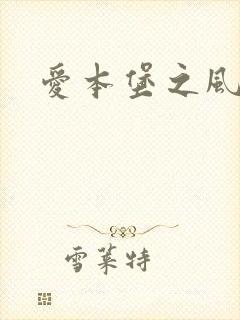 愛本堡之風
雪萊特